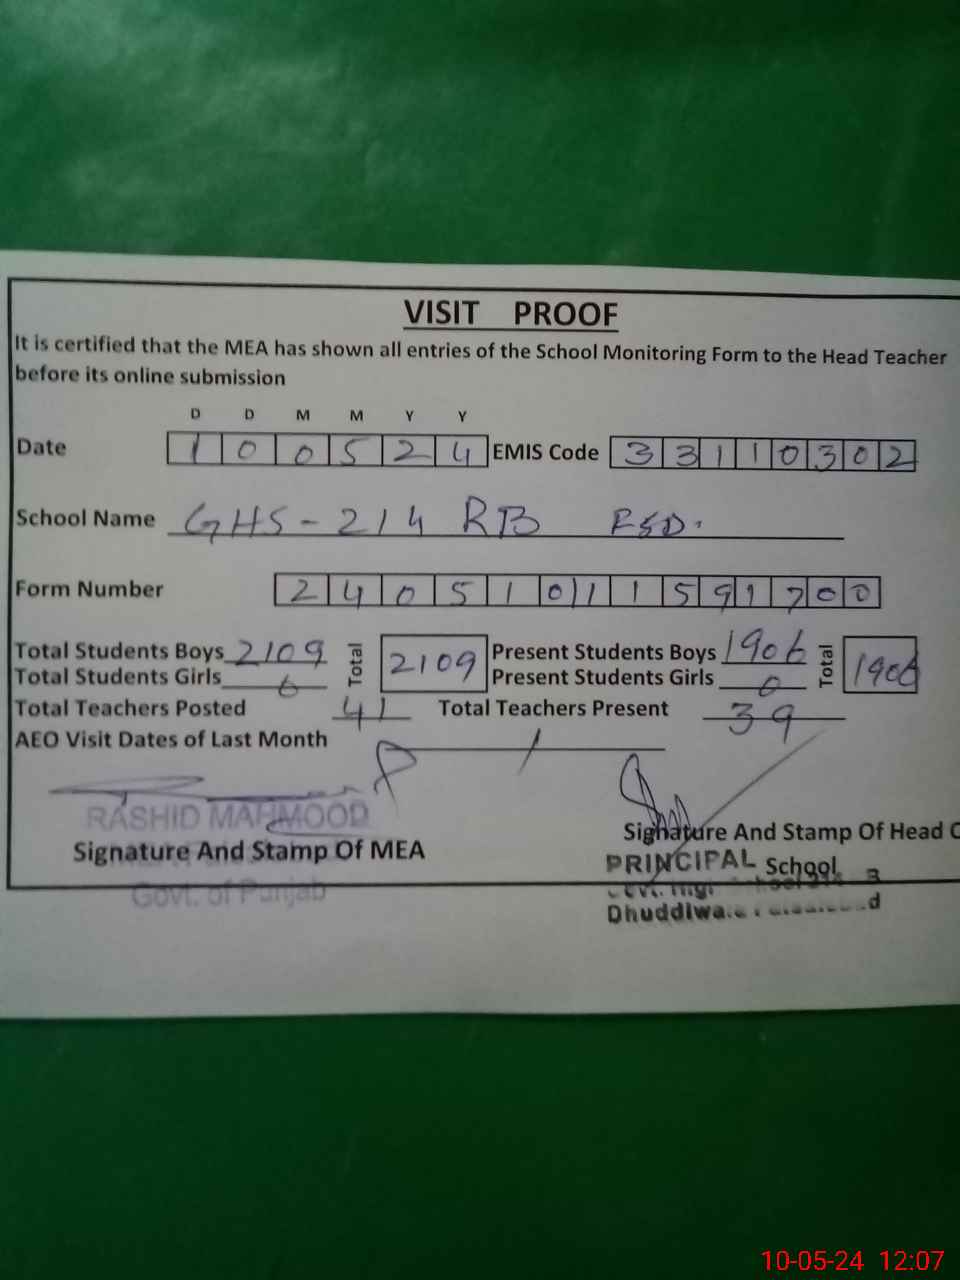 VISIT PROOF
It is certified that the MEA has shown all entries of the School Monitoring Form to the Head Teacher
before its online submission
D D M M Y Y
Date 1 0 0 5 2 4 EMIS Code 3 3 1 1 0 3 0 2
School Name GHS-214 RB FSD.
Form Number 2 4 0 5 1 0 1 1 5 9 1 7 0 0
Total Students Boys 2109 Total 2109 Present Students Boys 1906 Total 1906
Total Students Girls 0 Present Students Girls 0
Total Teachers Posted 41 Total Teachers Present 39
AEO Visit Dates of Last Month
RASHID MAHMOOD
Signature And Stamp Of MEA Signature And Stamp Of Head
PRINCIPAL School
Govt. of Punjab
10-05-24 12:07